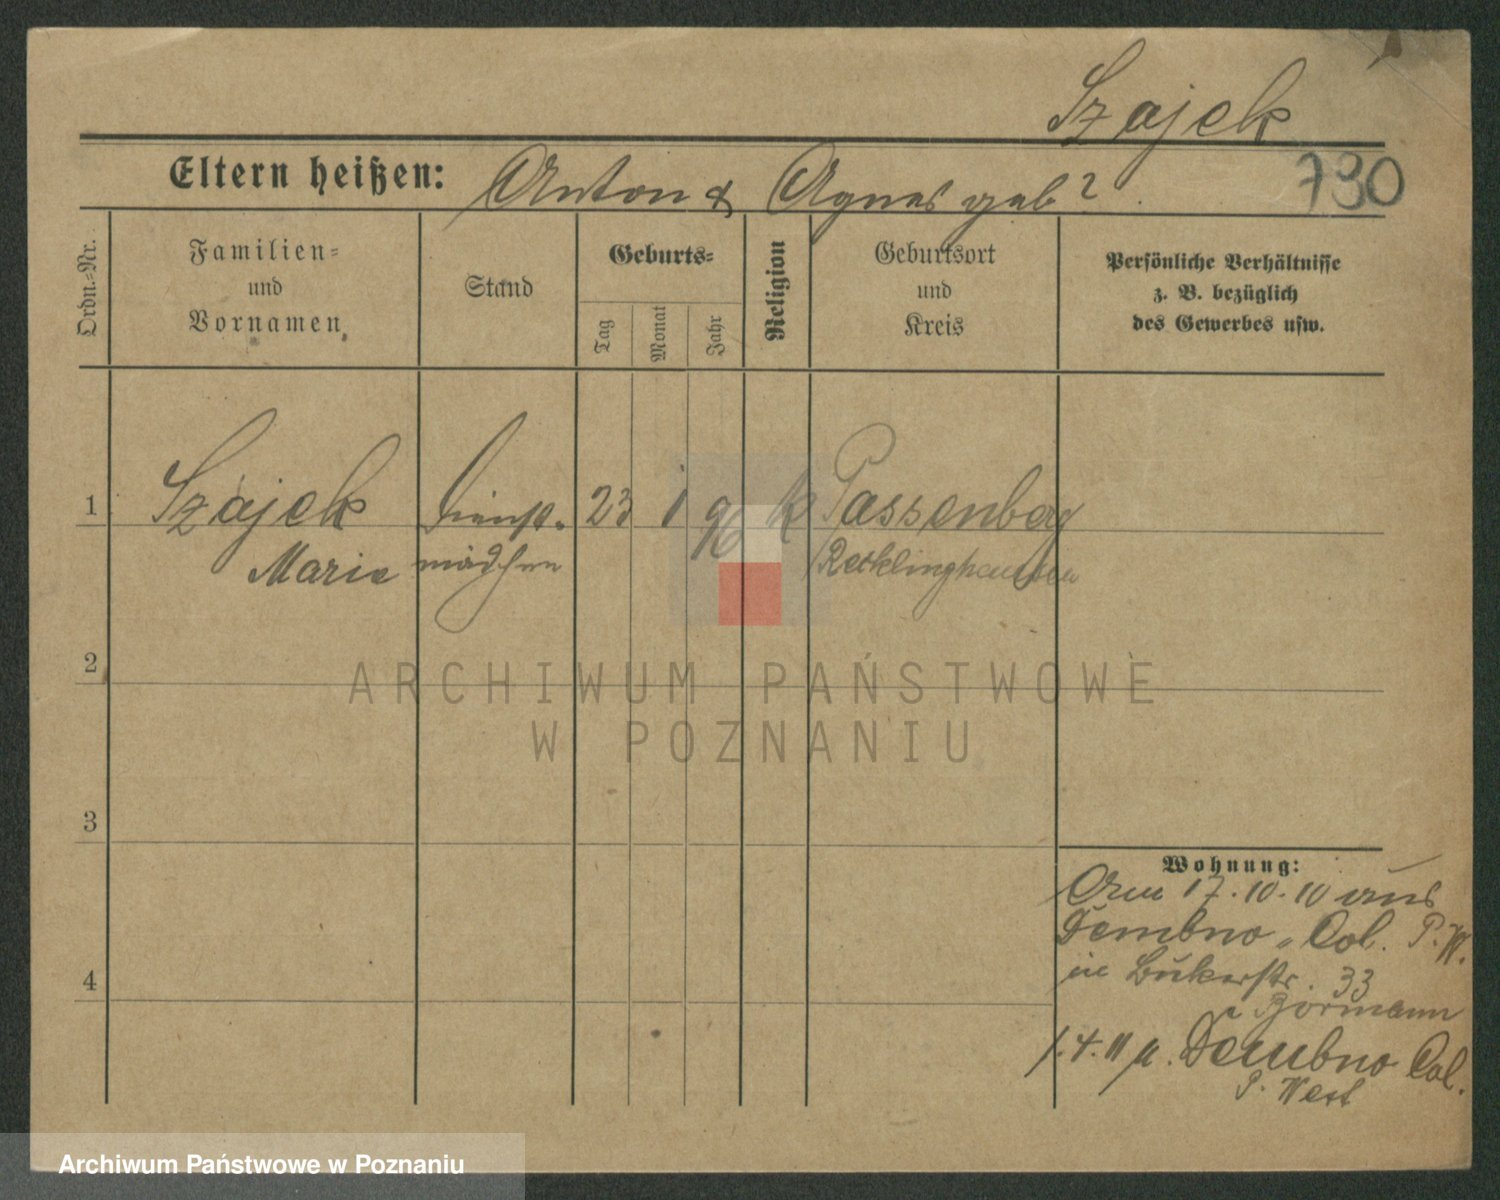 Szajek
Eltern heißen: Anton & Agnes geb ?
730
Ordn.-Nr.
Familien-
und
Vornamen
Stand
Geburts-
Tag
Monat
Jahr
Religion
Geburtsort
und
Kreis
Persönliche Verhältnisse
z. B. bezüglich
des Gewerbes usw.
1 Szajek Dienst- 23 1 96 k Passenberg
Marie mädchen Recklinghausen
2
3
4
Wohnung:
Am 17.10.10 aus
Dembno Col. P. W.
in Bukerstr. 33
Bormann
1.4.11 n. Dembno Col.
P. West
ARCHIWUM PAŃSTWOWE
W POZNANIU
Archiwum Państwowe w Poznaniu